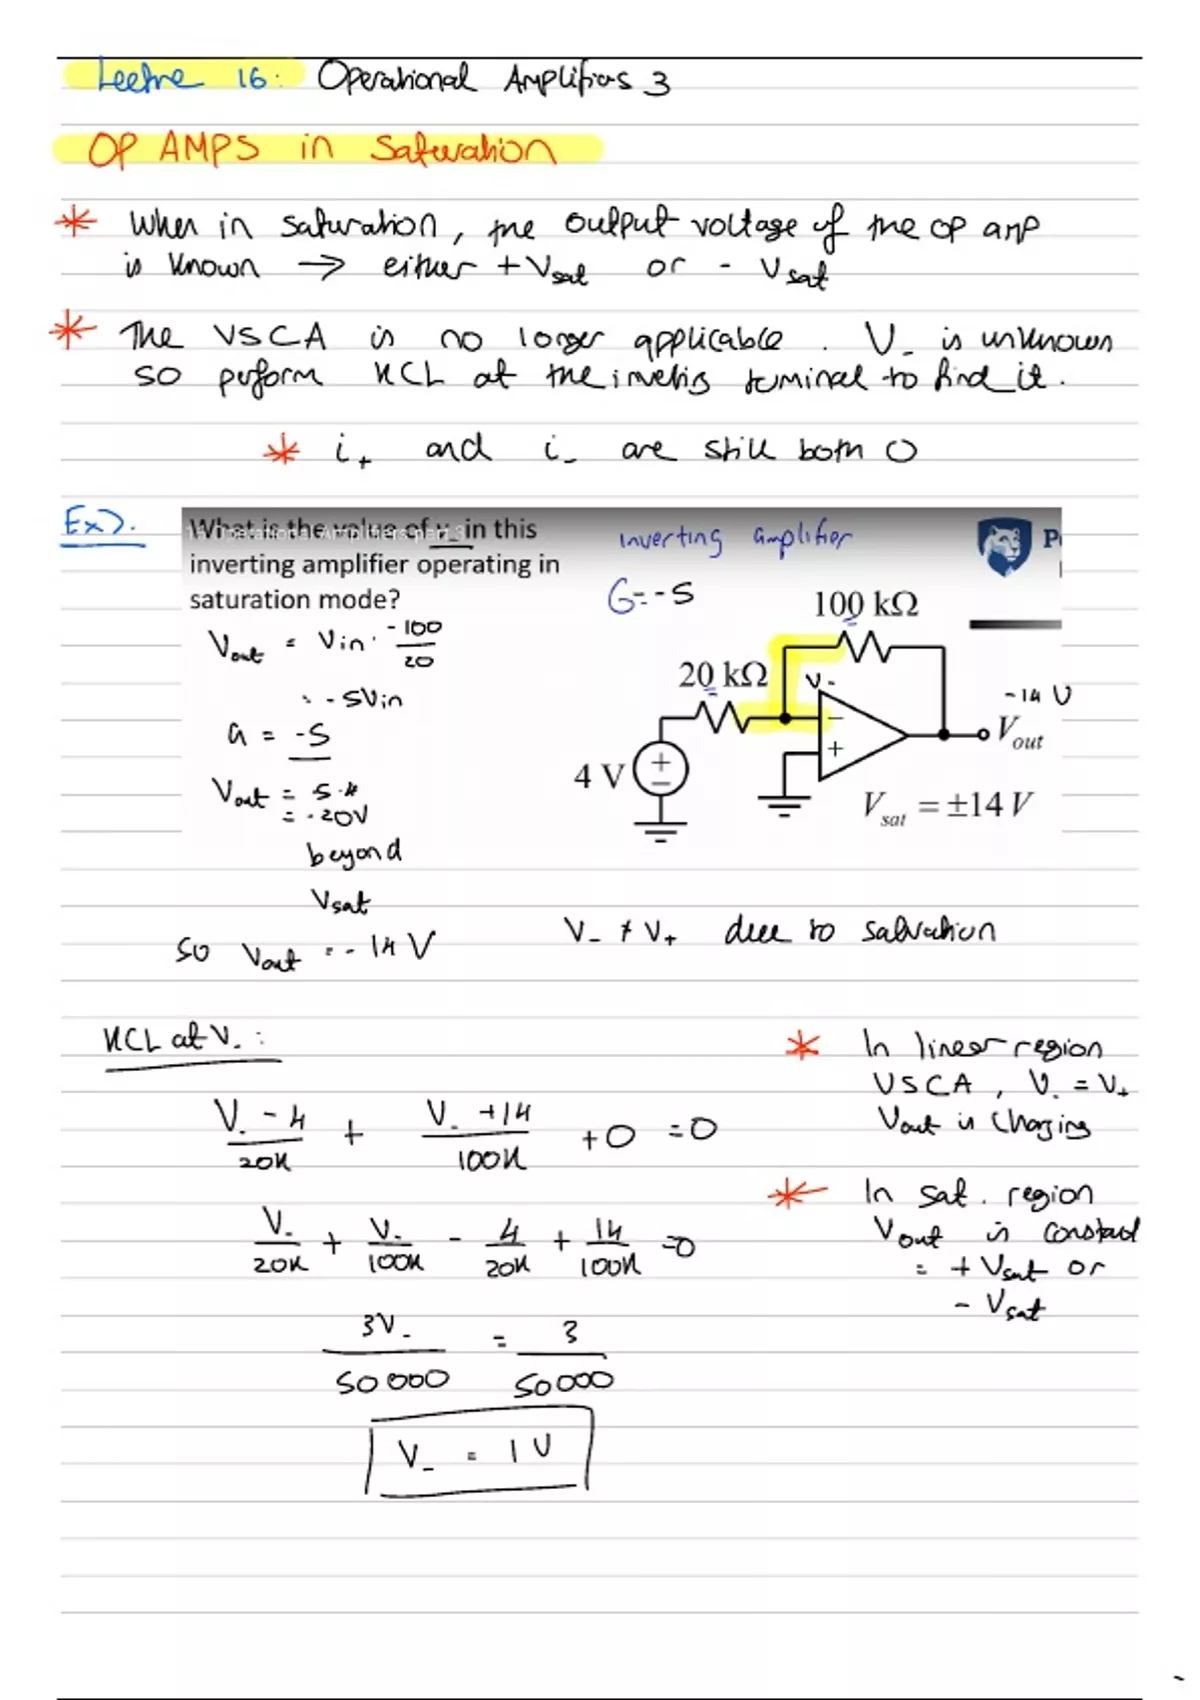 Lecture 16: Operational Amplifiers 3
OP AMPS in Saturation
* When in saturation, the output voltage of the op amp
is known → either + Vsat or - Vsat
* The VSCA is no longer applicable. V_ is unknown
so perform KCL at the inverting terminal to find it.
* i+ and i- are still both 0
Ex).
What is the value of v_ in this
inverting amplifier operating in
saturation mode?
inverting amplifier
G = -5
100 kΩ
20 kΩ
V-
-14 V
Vout
4 V
Vsat = ±14 V
Vout = Vin · -100/20
= -5Vin
G = -5
Vout = 5·4
= -20V
beyond
Vsat
so Vout = -14 V
V_ ≠ V+ due to saturation
KCL at V_ :
(V_ - 4)/20k + (V_ + 14)/100k + 0 = 0
V_/20k + V_/100k - 4/20k + 14/100k = 0
3V_/50000 = 3/50000
V_ = 1 V
* In linear region
VSCA, V_ = V+
Vout is changing
* In sat. region
Vout is constant
= + Vsat or
- Vsat